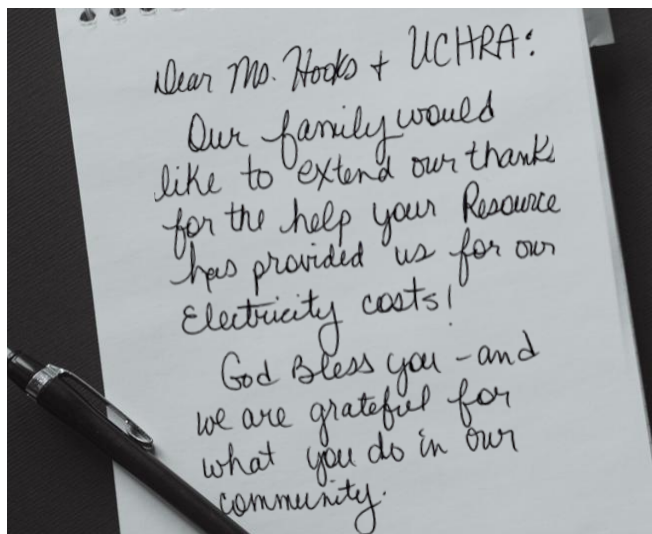 Dear Ms. Hooks + UCHRA:
Our family would
like to extend our thanks
for the help your Resource
has provided us for our
Electricity costs!
God Bless you - and
we are grateful for
what you do in our
community.